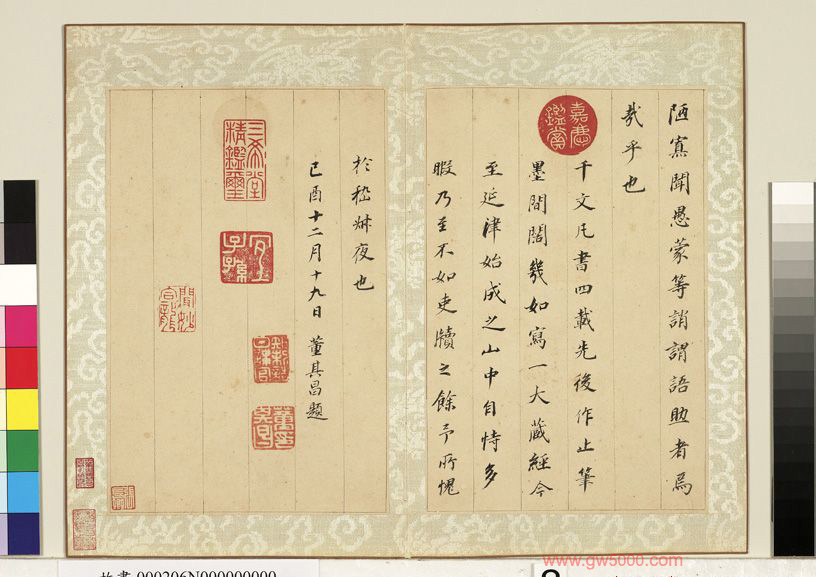 陋寡聞愚蒙等誚謂語助者焉
哉乎也
千文凡書四載先後作止筆
墨間闊幾如寫一大藏經今
至延津始成之山中自恃多
暇乃至不如吏牘之餘予所愧
於嵇叔夜也
己酉十二月十九日 董其昌題
嘉慶鑑賞
三希堂精鑑璽
宜子孫
www.gw5000.com